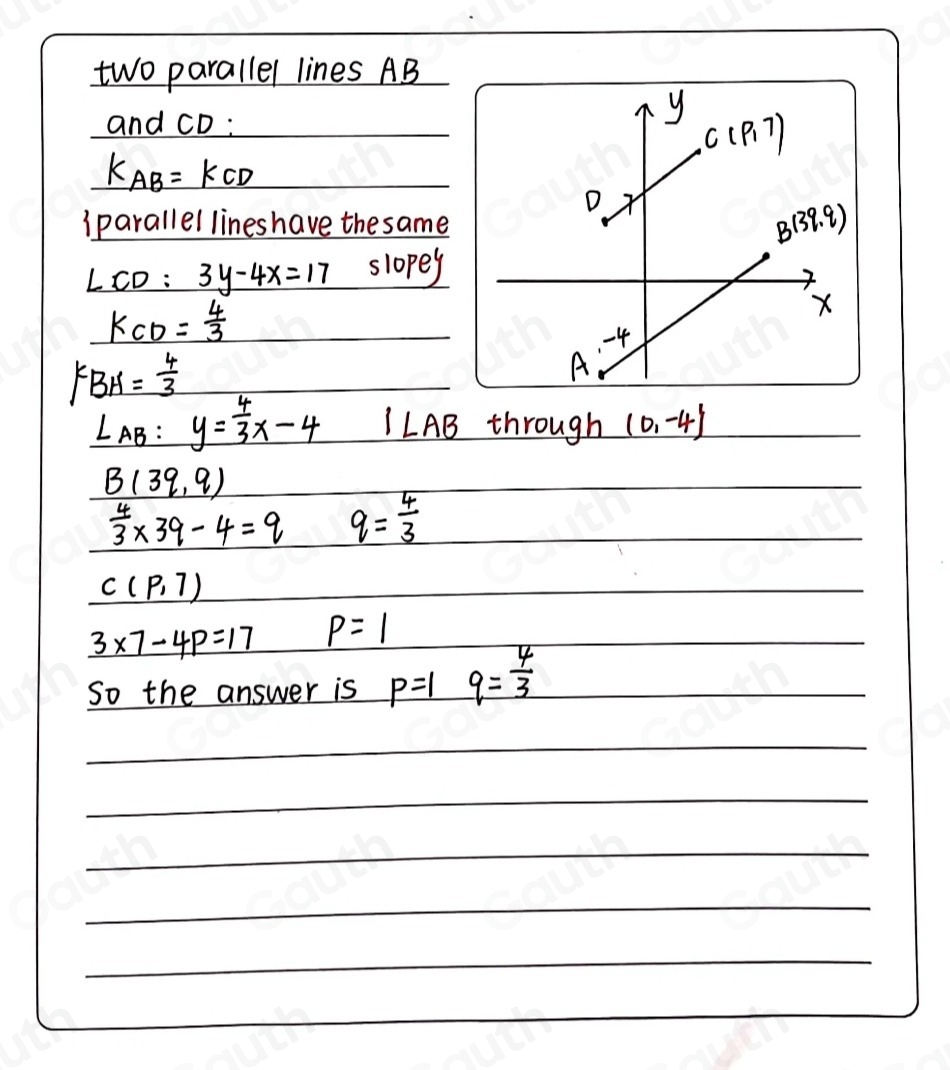 two parallel lines AB
and CD:
K_AB = K_CD
{parallel lines have the same
slope}
L_CD: 3y-4x=17
K_CD = 4/3
K_BA = 4/3
L_AB: y=4/3x-4 {LAB through (0,-4)}
B(3q,q)
4/3×3q-4=q q=4/3
C(P,7)
3×7-4P=17 P=1
So the answer is p=1 q=4/3
y
C(P,7)
D
B(3q,q)
x
-4
A
Gauth